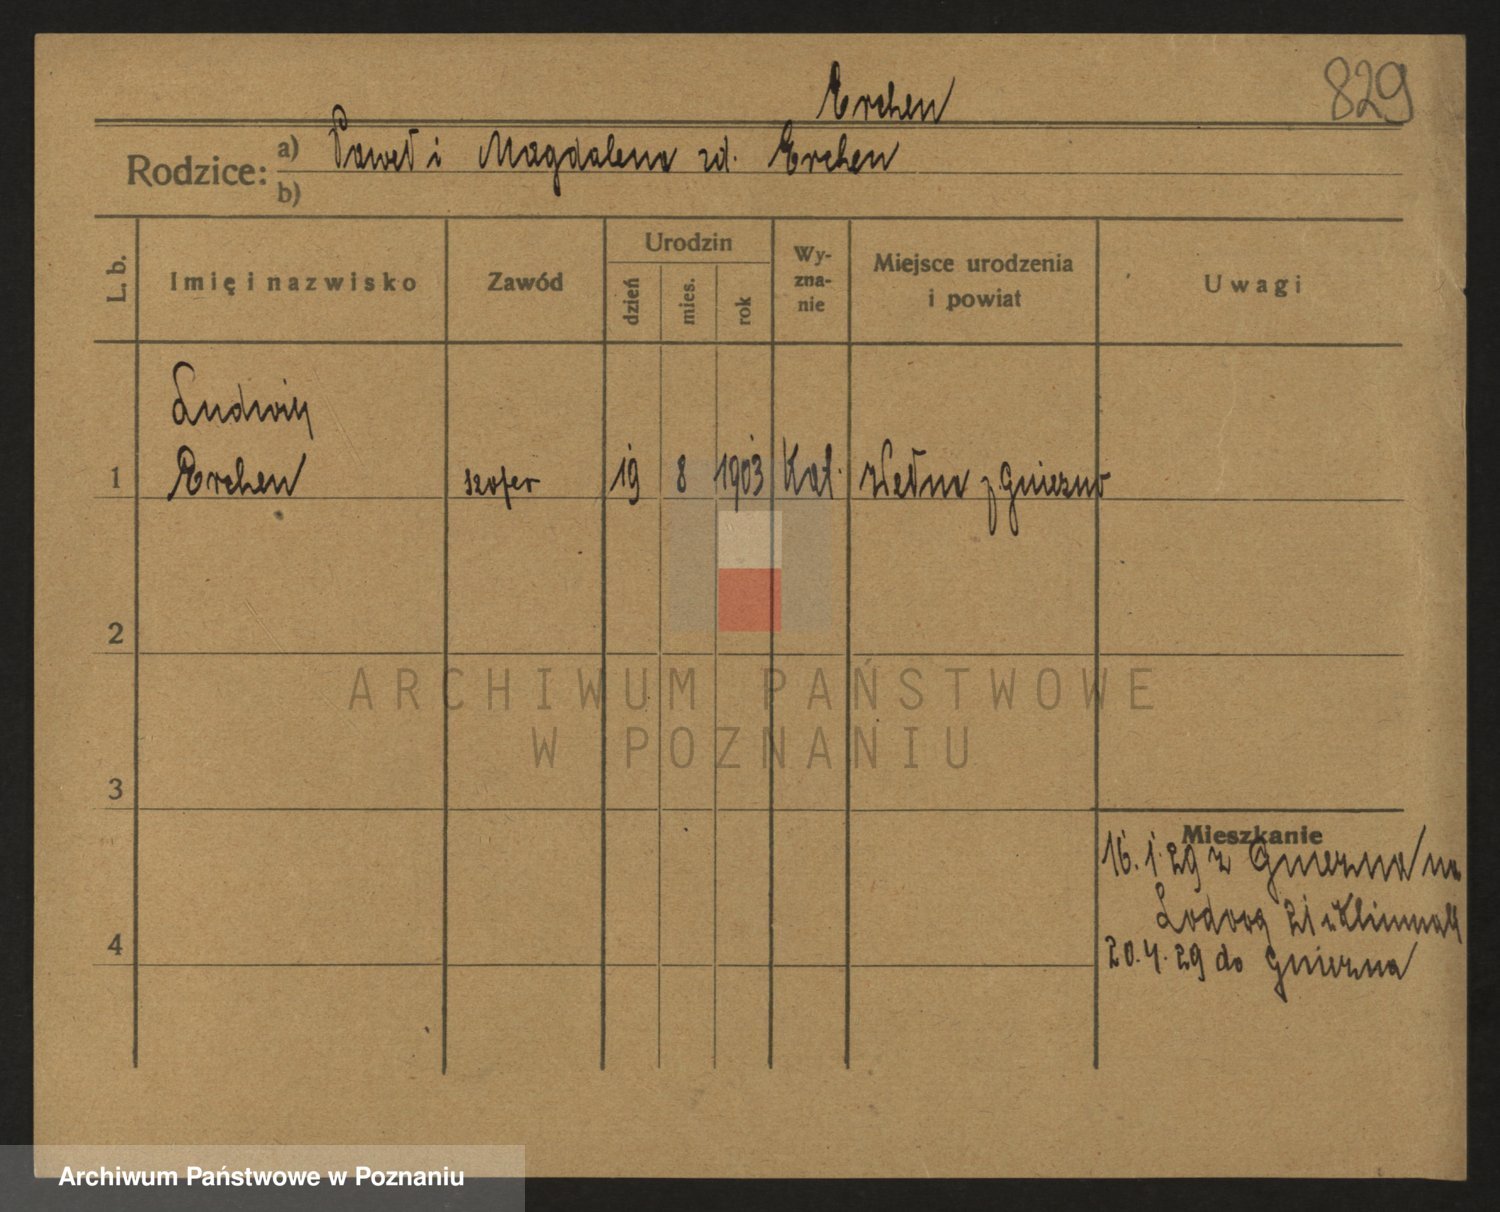 Erchen
829
Rodzice: a) Paweł i Magdalena zd. Erchen
b)
L. b.
Imię i nazwisko
Zawód
Urodzin
dzień
mies.
rok
Wy-
zna-
nie
Miejsce urodzenia
i powiat
Uwagi
Ludwik
1 Erchen szofer 19 8 1903 Kat. Wełna Gniezno
2
ARCHIWUM PAŃSTWOWE
W POZNANIU
3
Mieszkanie
16. 1. 29 z Gniezna na
21
4
20. 4. 29 do Gniezna
Archiwum Państwowe w Poznaniu